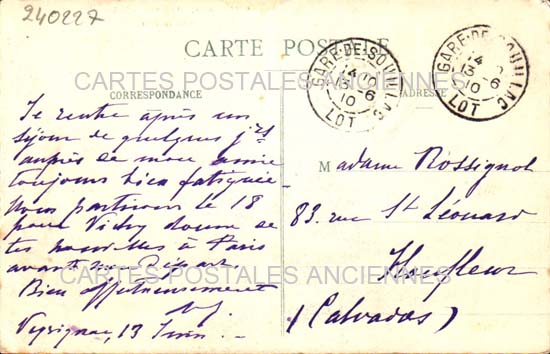 240227
CARTE POSTALE
GARE-DE-SOUILLAC
14
13 - 6
10
LOT
GARE-DE-SOUILLAC
14
13 - 6
10
LOT
CARTES POSTALES ANCIENNES
CORRESPONDANCE
ADRESSE
Je rentre après un
séjour de quelques jrs
auprès de mon amie
toujours bien fatiguée
Nous partirons le 18
pour Vichy donne de
tes nouvelles à Paris
avant mon Départ
Bien affectueusement
Veyrignac, 13 Juin.
Madame Rossignol
83. rue St Léonard
Honfleur
(Calvados)
CARTES POSTALES ANCIENNES